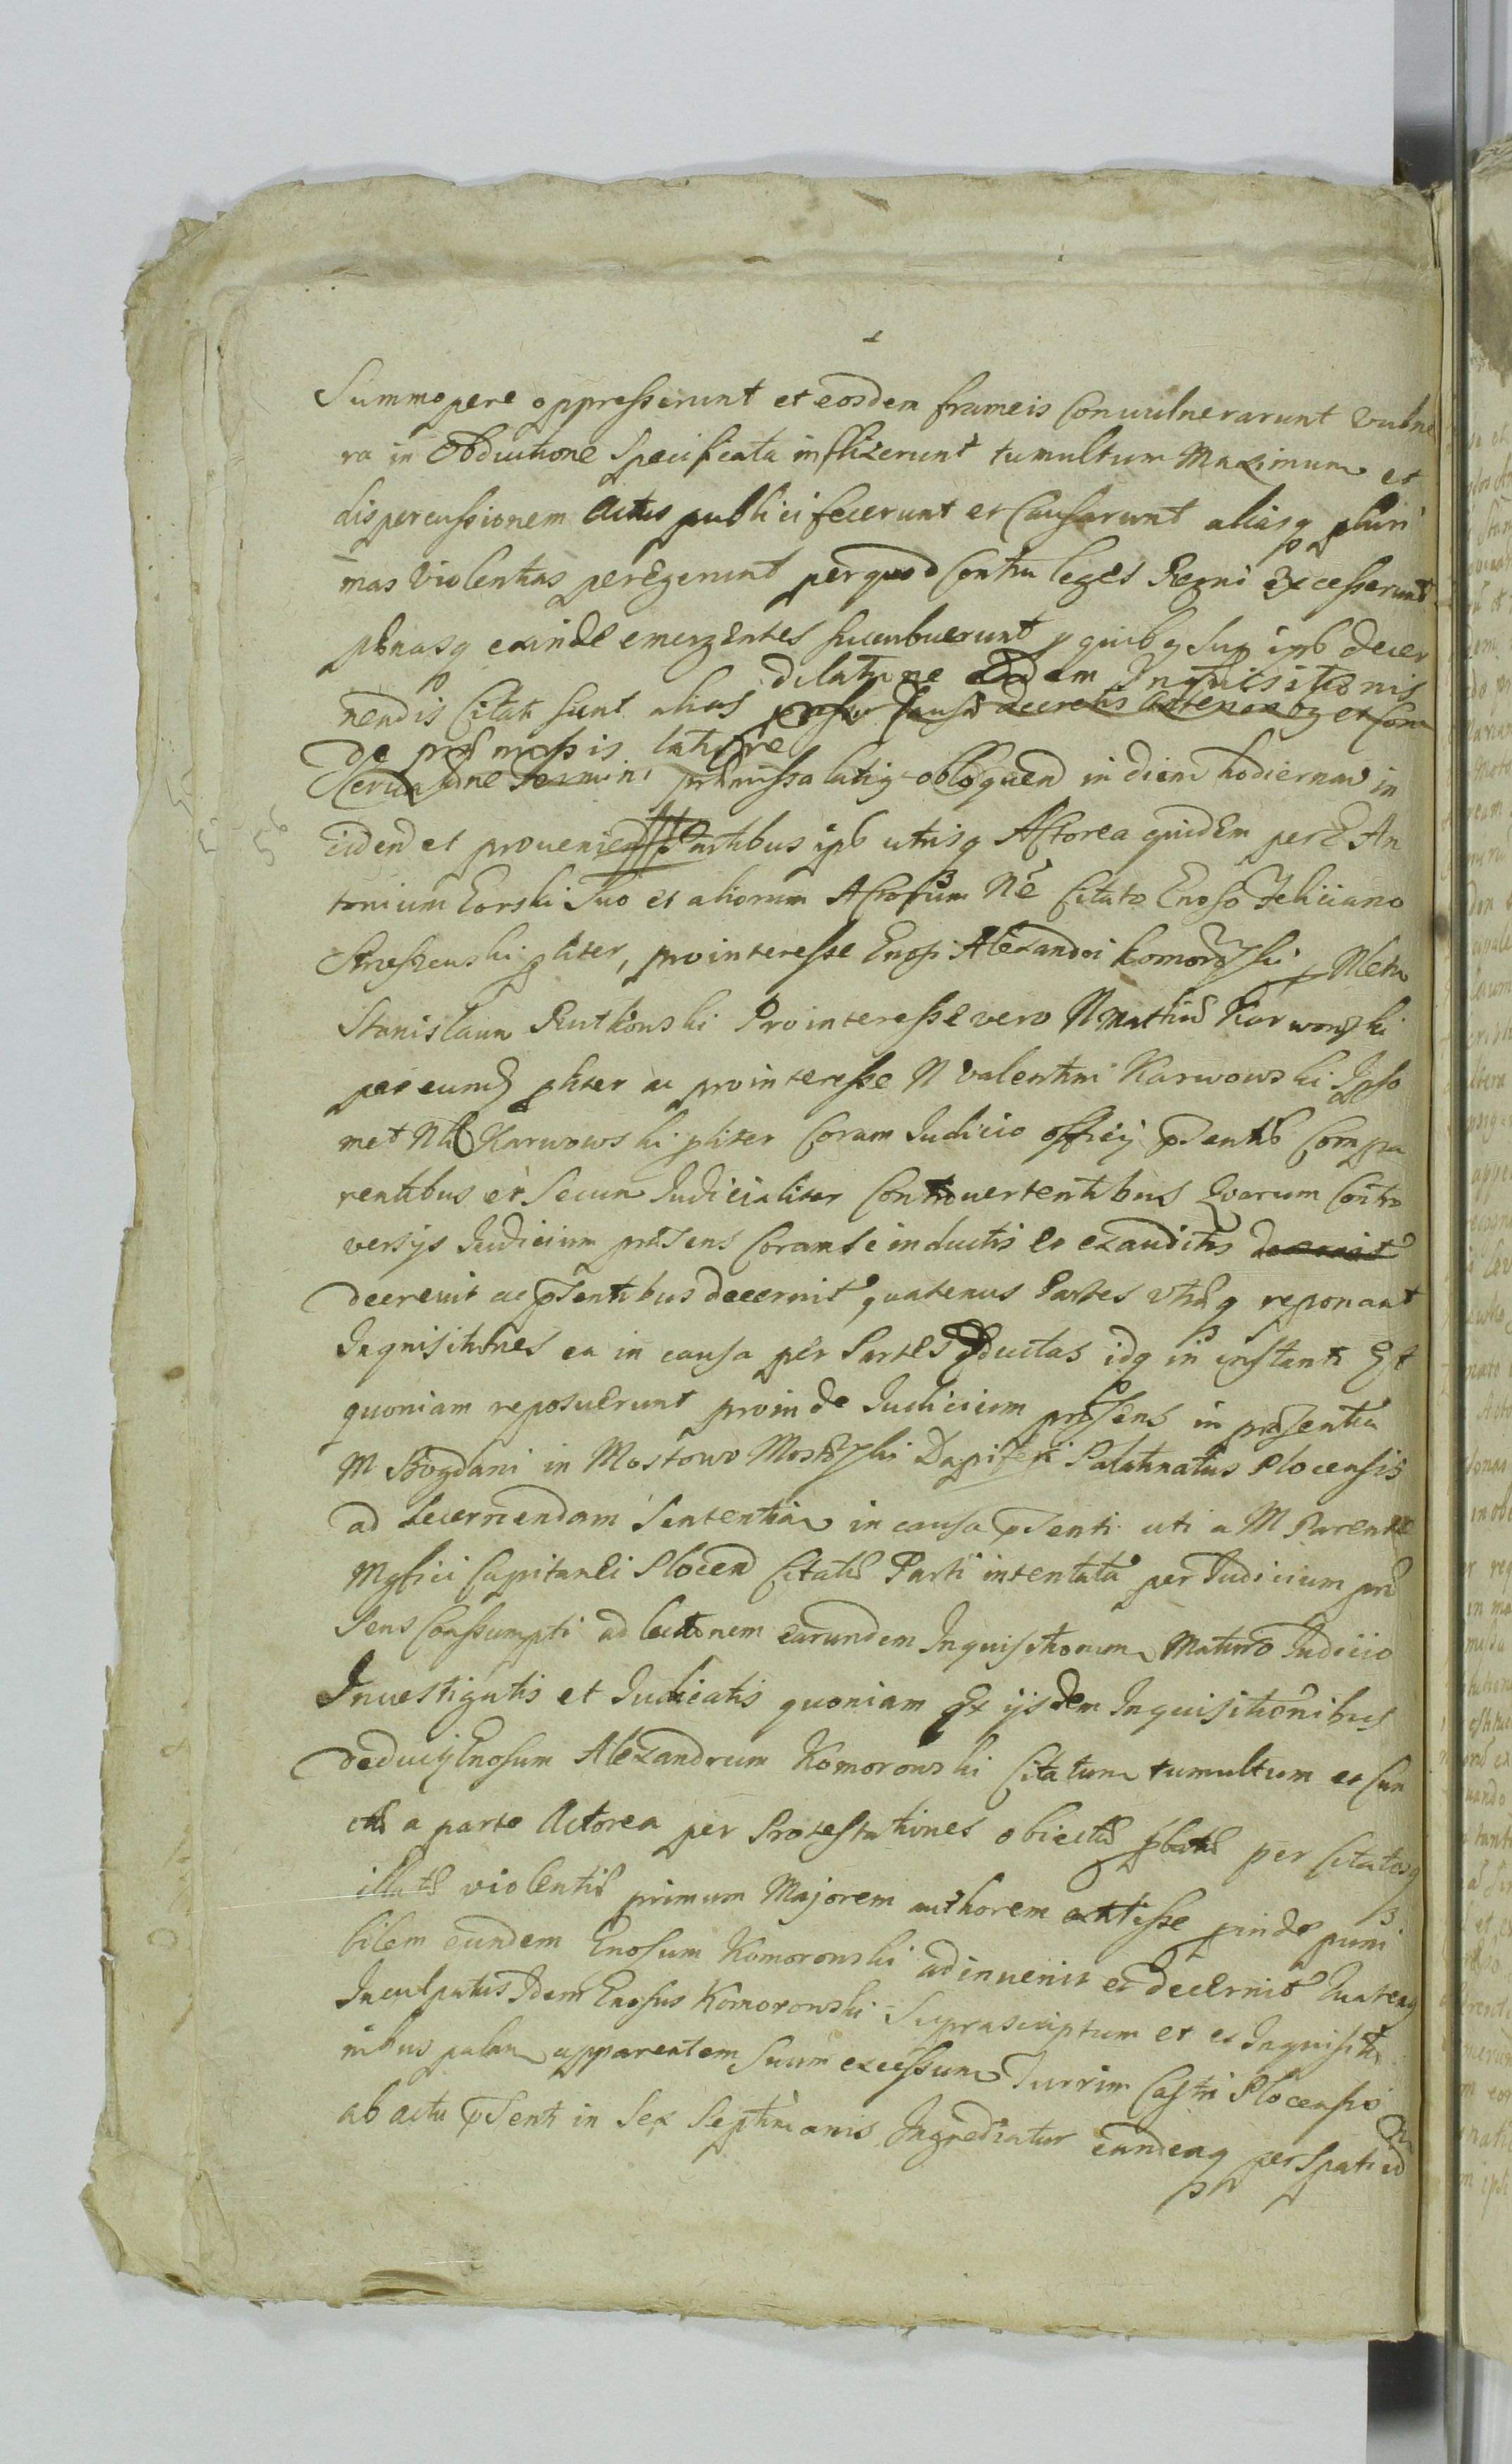 Summopere oppresserunt et eosdem frameis Convulnerarunt vulne
ra in Obductione Specificata inflixerunt tumultum Maximum et
dispercussionem Actus publici fecerunt et Causarunt aliasq pluri
mas Violentias peregerunt per quod Contra leges Regni Excesserunt
penasq exinde emergentes succubuerunt p quibq Sup ipb decer
dilatione Eadem Inquisitionis
nendis Citati sunt alias decretis et
de premissis latique
termini premissa latiq obloquend in diem hodiernam in
ciden et provenien Partibus ipb utrisq Actorea quidem per G An
tonium Gorski Suo et aliorum Actorum Nē Citato Gnoso Feliciano
pliter, pro interesse Gnosi Alexandri Komorowski p Nlem
Stanislaum Rutkowski Pro interesse vero N Mathiæ Karwowski
per eund pliter ac pro interesse N Valentini Karwowski Ipso
met Nli Karwowski pliter Coram Iudicio officij pŝentib Compa
rentibus et Secum Iudicialiter Controvertentibus Quarum Contro
versijs Iudicium præsens Coram se inductis et exauditis decernit
decrevit ac pŝentibus decernit quatenus Partes utræq reponant
Inquisitiones ea in causa per Partes Eductas idq in instanti Et
quoniam reposuerunt proinde Iudicium præsens in præsentia
M Bogdani in Mostowo Mostowski Dapiferi Palatinatus Plocensis
ad decernendam Sententiam in causa pŝenti uti a M Parente
Mgfici Capitanei Plocen Citatæ Parti intentata per Iudicium præ
sens Consumpti ad lectionem earundem Inquisitionum Maturo Iudicio
Investigatis et Iudicatis quoniam Ex ijsdem Inquisitionibus
deducij Gnosum Alexandrum Komorowski Citatum tumultum et Cun
ctis a parte Actorea per Protestationes obiectis per Citatosq
illatis violentijs primum Majorem authorem extitisse pinde puni
bilem eundem Gnosum Komorowski adinvenit et decernit Quatenq
Inculpatus Idem Gnosus Komorowski Suprascriptum et ex Inquisitio
nibus palam apparentem Suum excessum Turrim Castri Plocensis
ab actu pŝenti in Sex Septimanis Ingrediatur eandemq per Spatiu
56